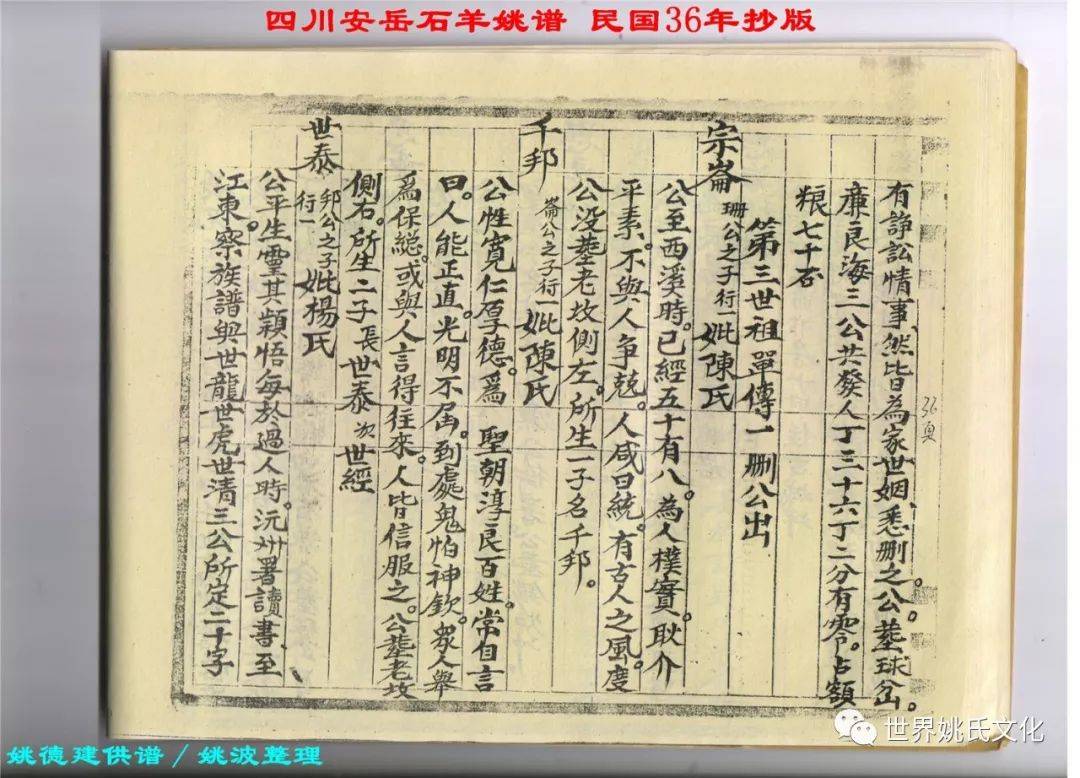 四川安岳石羊姚谱 民国36年抄版
有諍訟情事然皆為家世姻悉删之公塟球岔
廉良海三公共發人丁三十六丁二分有零占額
粮七十石
第三世祖單傳一删公出
宗崙 珊公之子行一 妣陳氏
公至西溪時已經五十有八為人樸實耿介
平素不與人争兢人咸曰統有古人之風度
公没塟老坟側左所生一子名千邦
千邦 崙公之子行一 妣陳氏
公性寬仁厚德為 聖朝淳良百姓常自言
曰人能正直光明不屈到處鬼怕神欽衆人舉
為保総或與人言得往來人皆信服之公塟老坟
側右所生二子長世泰次世經
世泰 邦公之子行一 妣楊氏
公平生靈其穎悟每於過人時沅州署讀書至
江東察族譜與世龍世虎世清三公所定二十字
36頁
姚德建供谱／姚波整理
世界姚氏文化